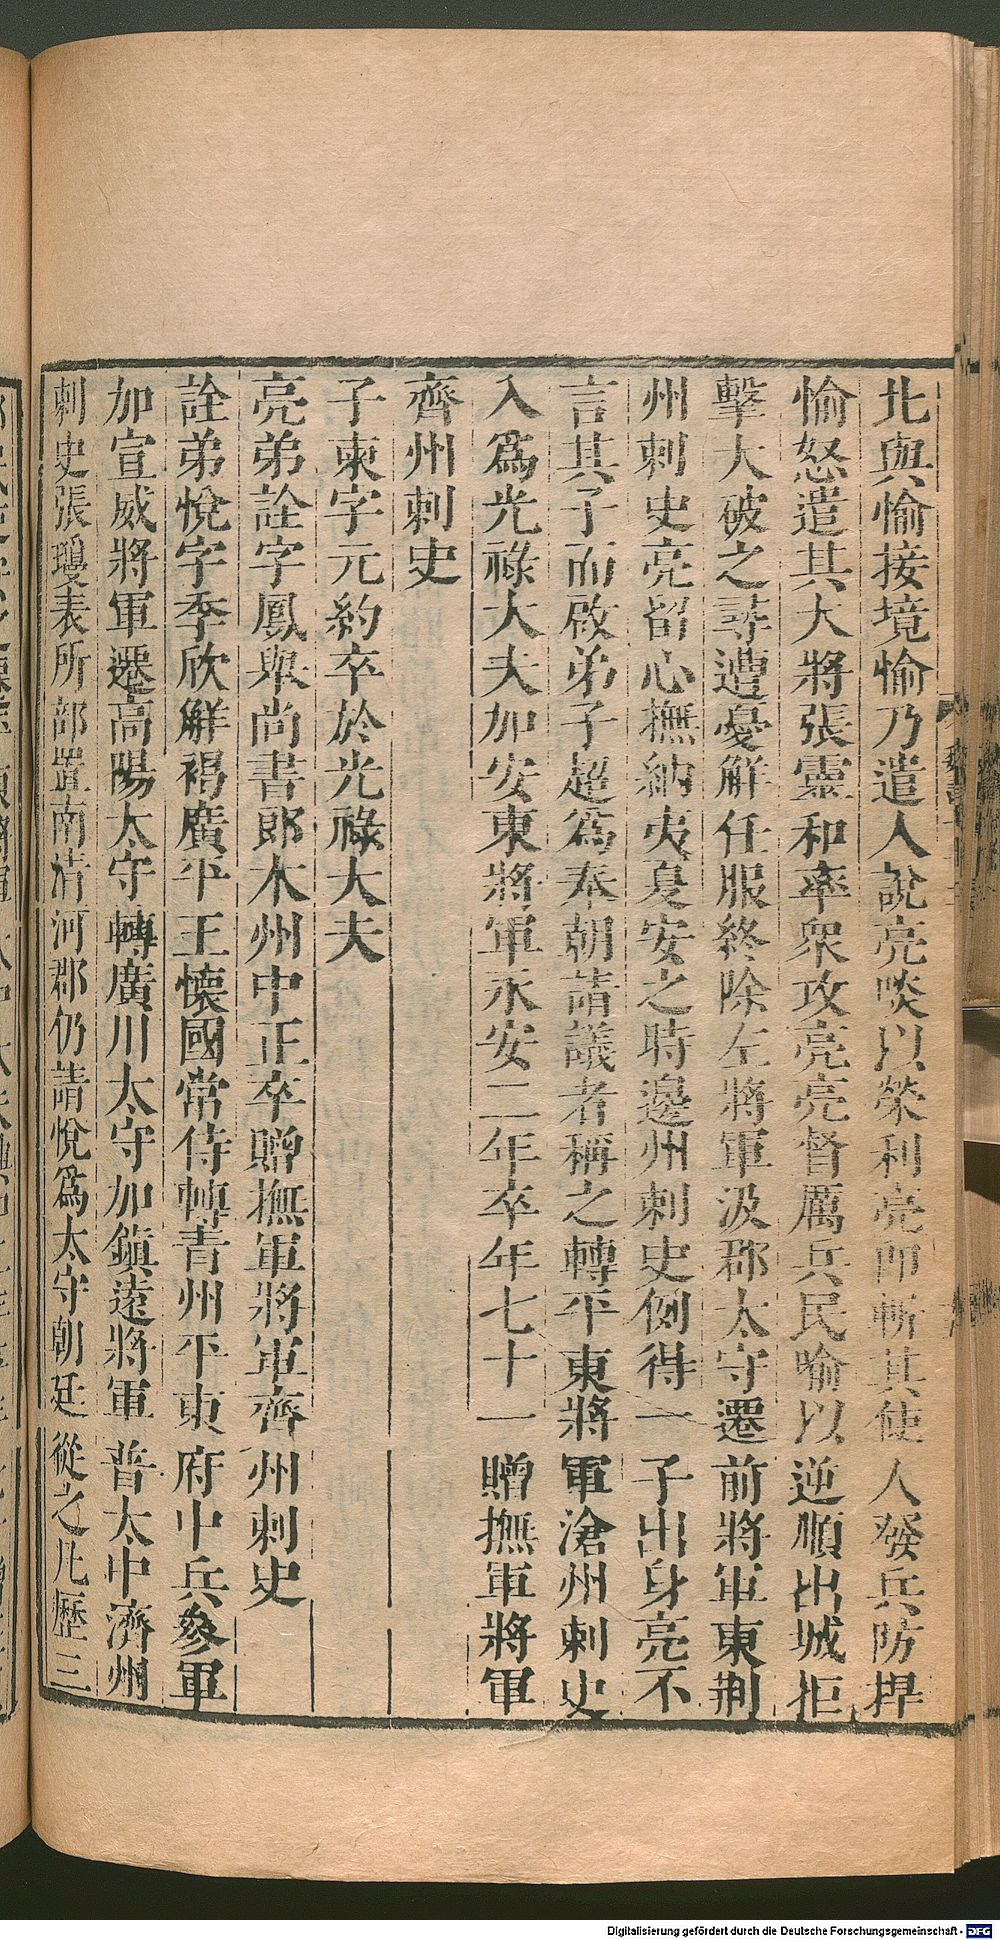 北與愉接境愉乃遣人說亮啖以榮利亮卽斬其使人發兵防捍
愉怒遣其大將張靈和率衆攻亮亮督厲兵民喻以逆順出城拒
擊大破之尋遭憂解任服終除左將軍汲郡太守遷前將軍東荆
州刺史亮留心撫納夷夏安之時邊州刺史例得一子出身亮不
言其子而啟弟子超爲奉朝請議者稱之轉平東將軍滄州刺史
入爲光祿大夫加安東將軍永安二年卒年七十一贈撫軍將軍
齊州刺史
子柬字元約卒於光祿大夫
亮弟詮字鳳舉尚書郎本州中正卒贈撫軍將軍齊州刺史
詮弟悅字季欣解褐廣平王懷國常侍轉青州平東府中兵參軍
加宣威將軍遷高陽太守轉廣川太守加鎭遠將軍普太中濟州
刺史張瓊表所部置南清河郡仍請悅爲太守朝廷從之凡歷三
Digitalisierung gefördert durch die Deutsche Forschungsgemeinschaft - DFG